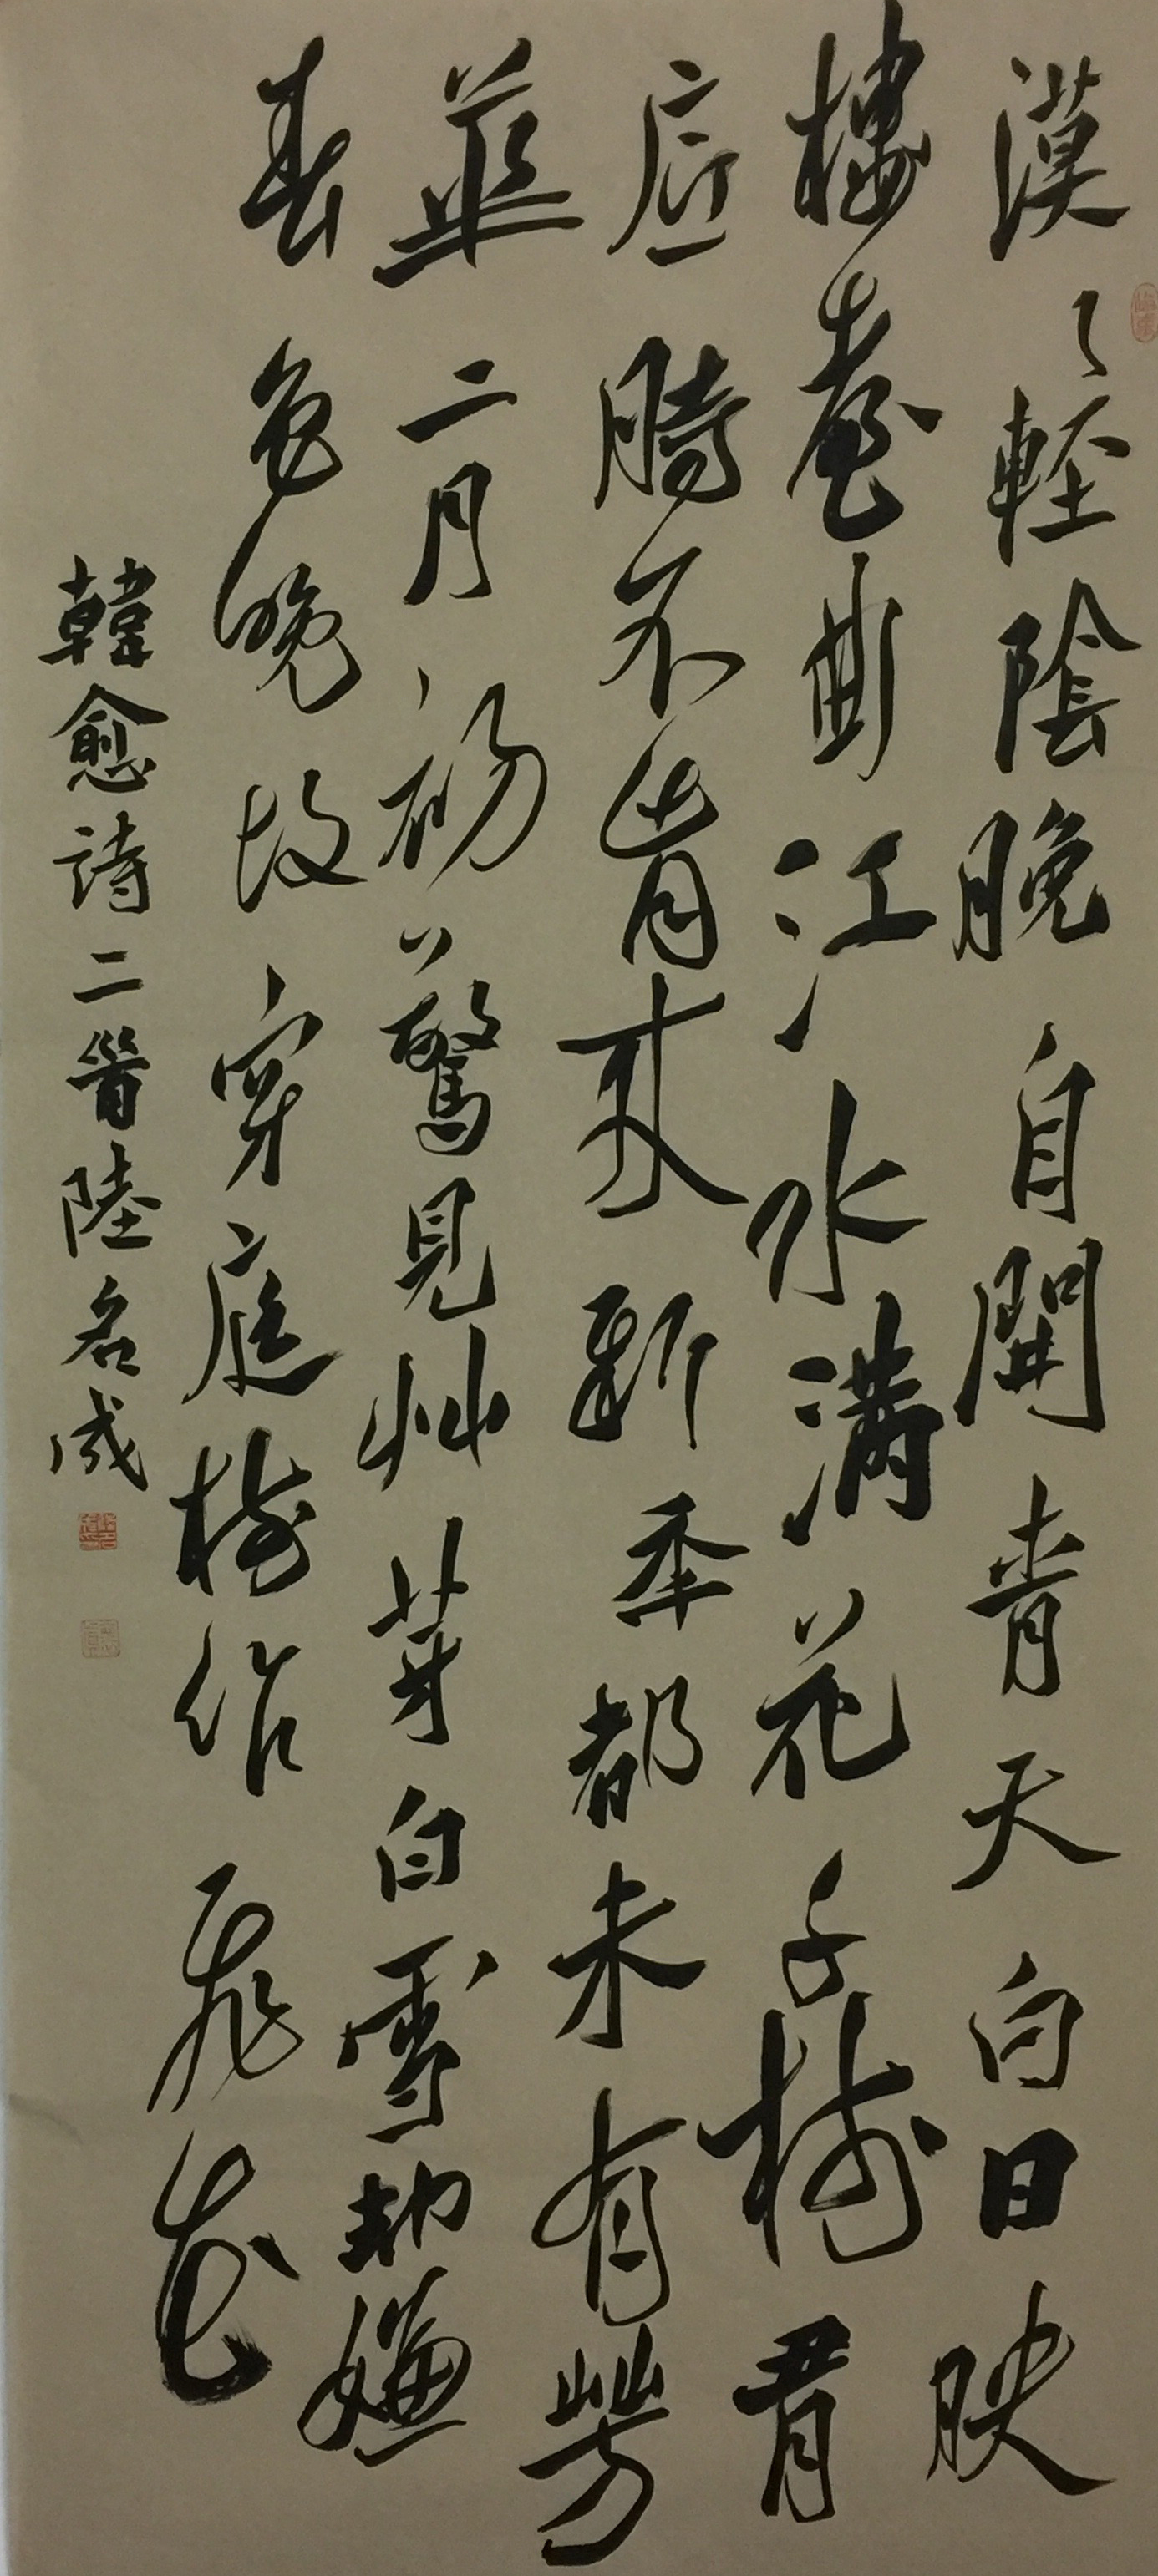 漠〻輕陰晚自開青天白日映
樓臺曲江水滿花千樹有
底時不肯來新年都未有芳
華二月初驚見艸芽白雪却嫌
春色晚故穿庭樹作飛花
韓愈詩二首陸名成